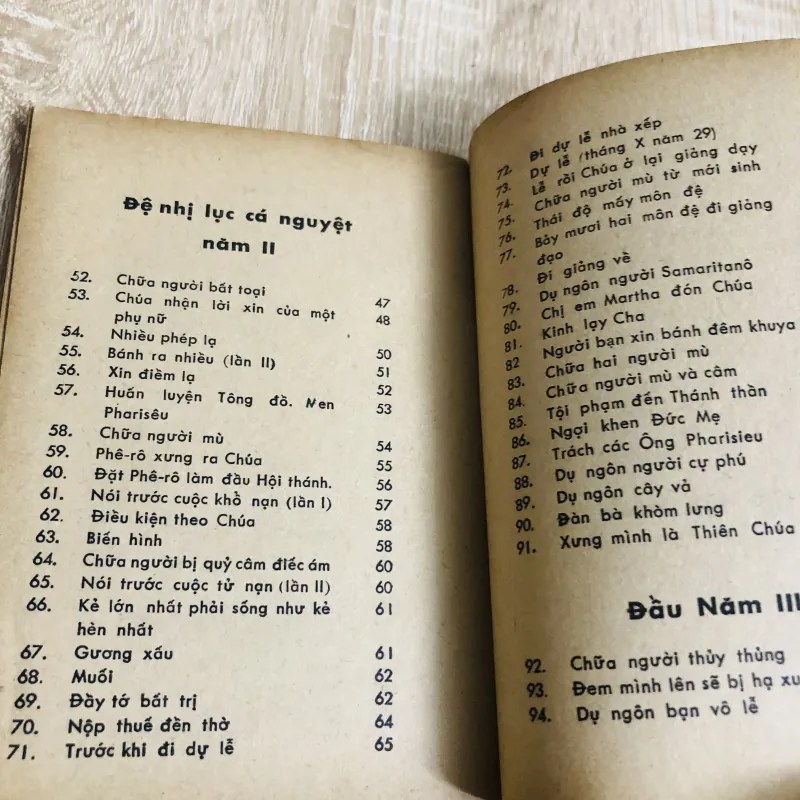 Đệ nhị lục cá nguyệt
năm II
52. Chữa người bất toại 47
53. Chúa nhận lời xin của một 48
phụ nữ
54. Nhiều phép lạ 50
55. Bánh ra nhiều (lần II) 51
56. Xin điềm lạ 52
57. Huấn luyện Tông đồ. Men 53
Pharisêu
58. Chữa người mù 54
59. Phê-rô xưng ra Chúa 55
60. Đặt Phê-rô làm đầu Hội thánh. 56
61. Nói trước cuộc khổ nạn (lần I) 57
62. Điều kiện theo Chúa 58
63. Biến hình 58
64. Chữa người bị quỷ câm điếc ám 60
65. Nói trước cuộc tử nạn (lần II) 60
66. Kẻ lớn nhất phải sống như kẻ 61
hèn nhất
67. Gương xấu 61
68. Muối 62
69. Đầy tớ bất trị 62
70. Nộp thuế đền thờ 64
71. Trước khi đi dự lễ 65
72. Đi dự lễ nhà xếp
73. Dự lễ (tháng X năm 29)
74. Lễ rồi Chúa ở lại giảng dạy
75. Chữa người mù từ mới sinh
76. Thái độ mấy môn đệ
77. Bảy mươi hai môn đệ đi giảng
đạo
78. Đi giảng về
79. Dụ ngôn người Samaritanô
80. Chị em Martha đón Chúa
81. Kinh lạy Cha
82 Người bạn xin bánh đêm khuya
83. Chữa hai người mù
84. Chữa người mù và câm
85. Tội phạm đến Thánh thần
86. Ngợi khen Đức Mẹ
87. Trách các Ông Pharisieu
88. Dụ ngôn người cự phú
89. Dụ ngôn cây vả
90. Đàn bà khòm lưng
91. Xưng mình là Thiên Chúa
Đầu Năm III
92. Chữa người thủy thủng
93. Đem mình lên sẽ bị hạ xu
94. Dụ ngôn bạn vô lễ